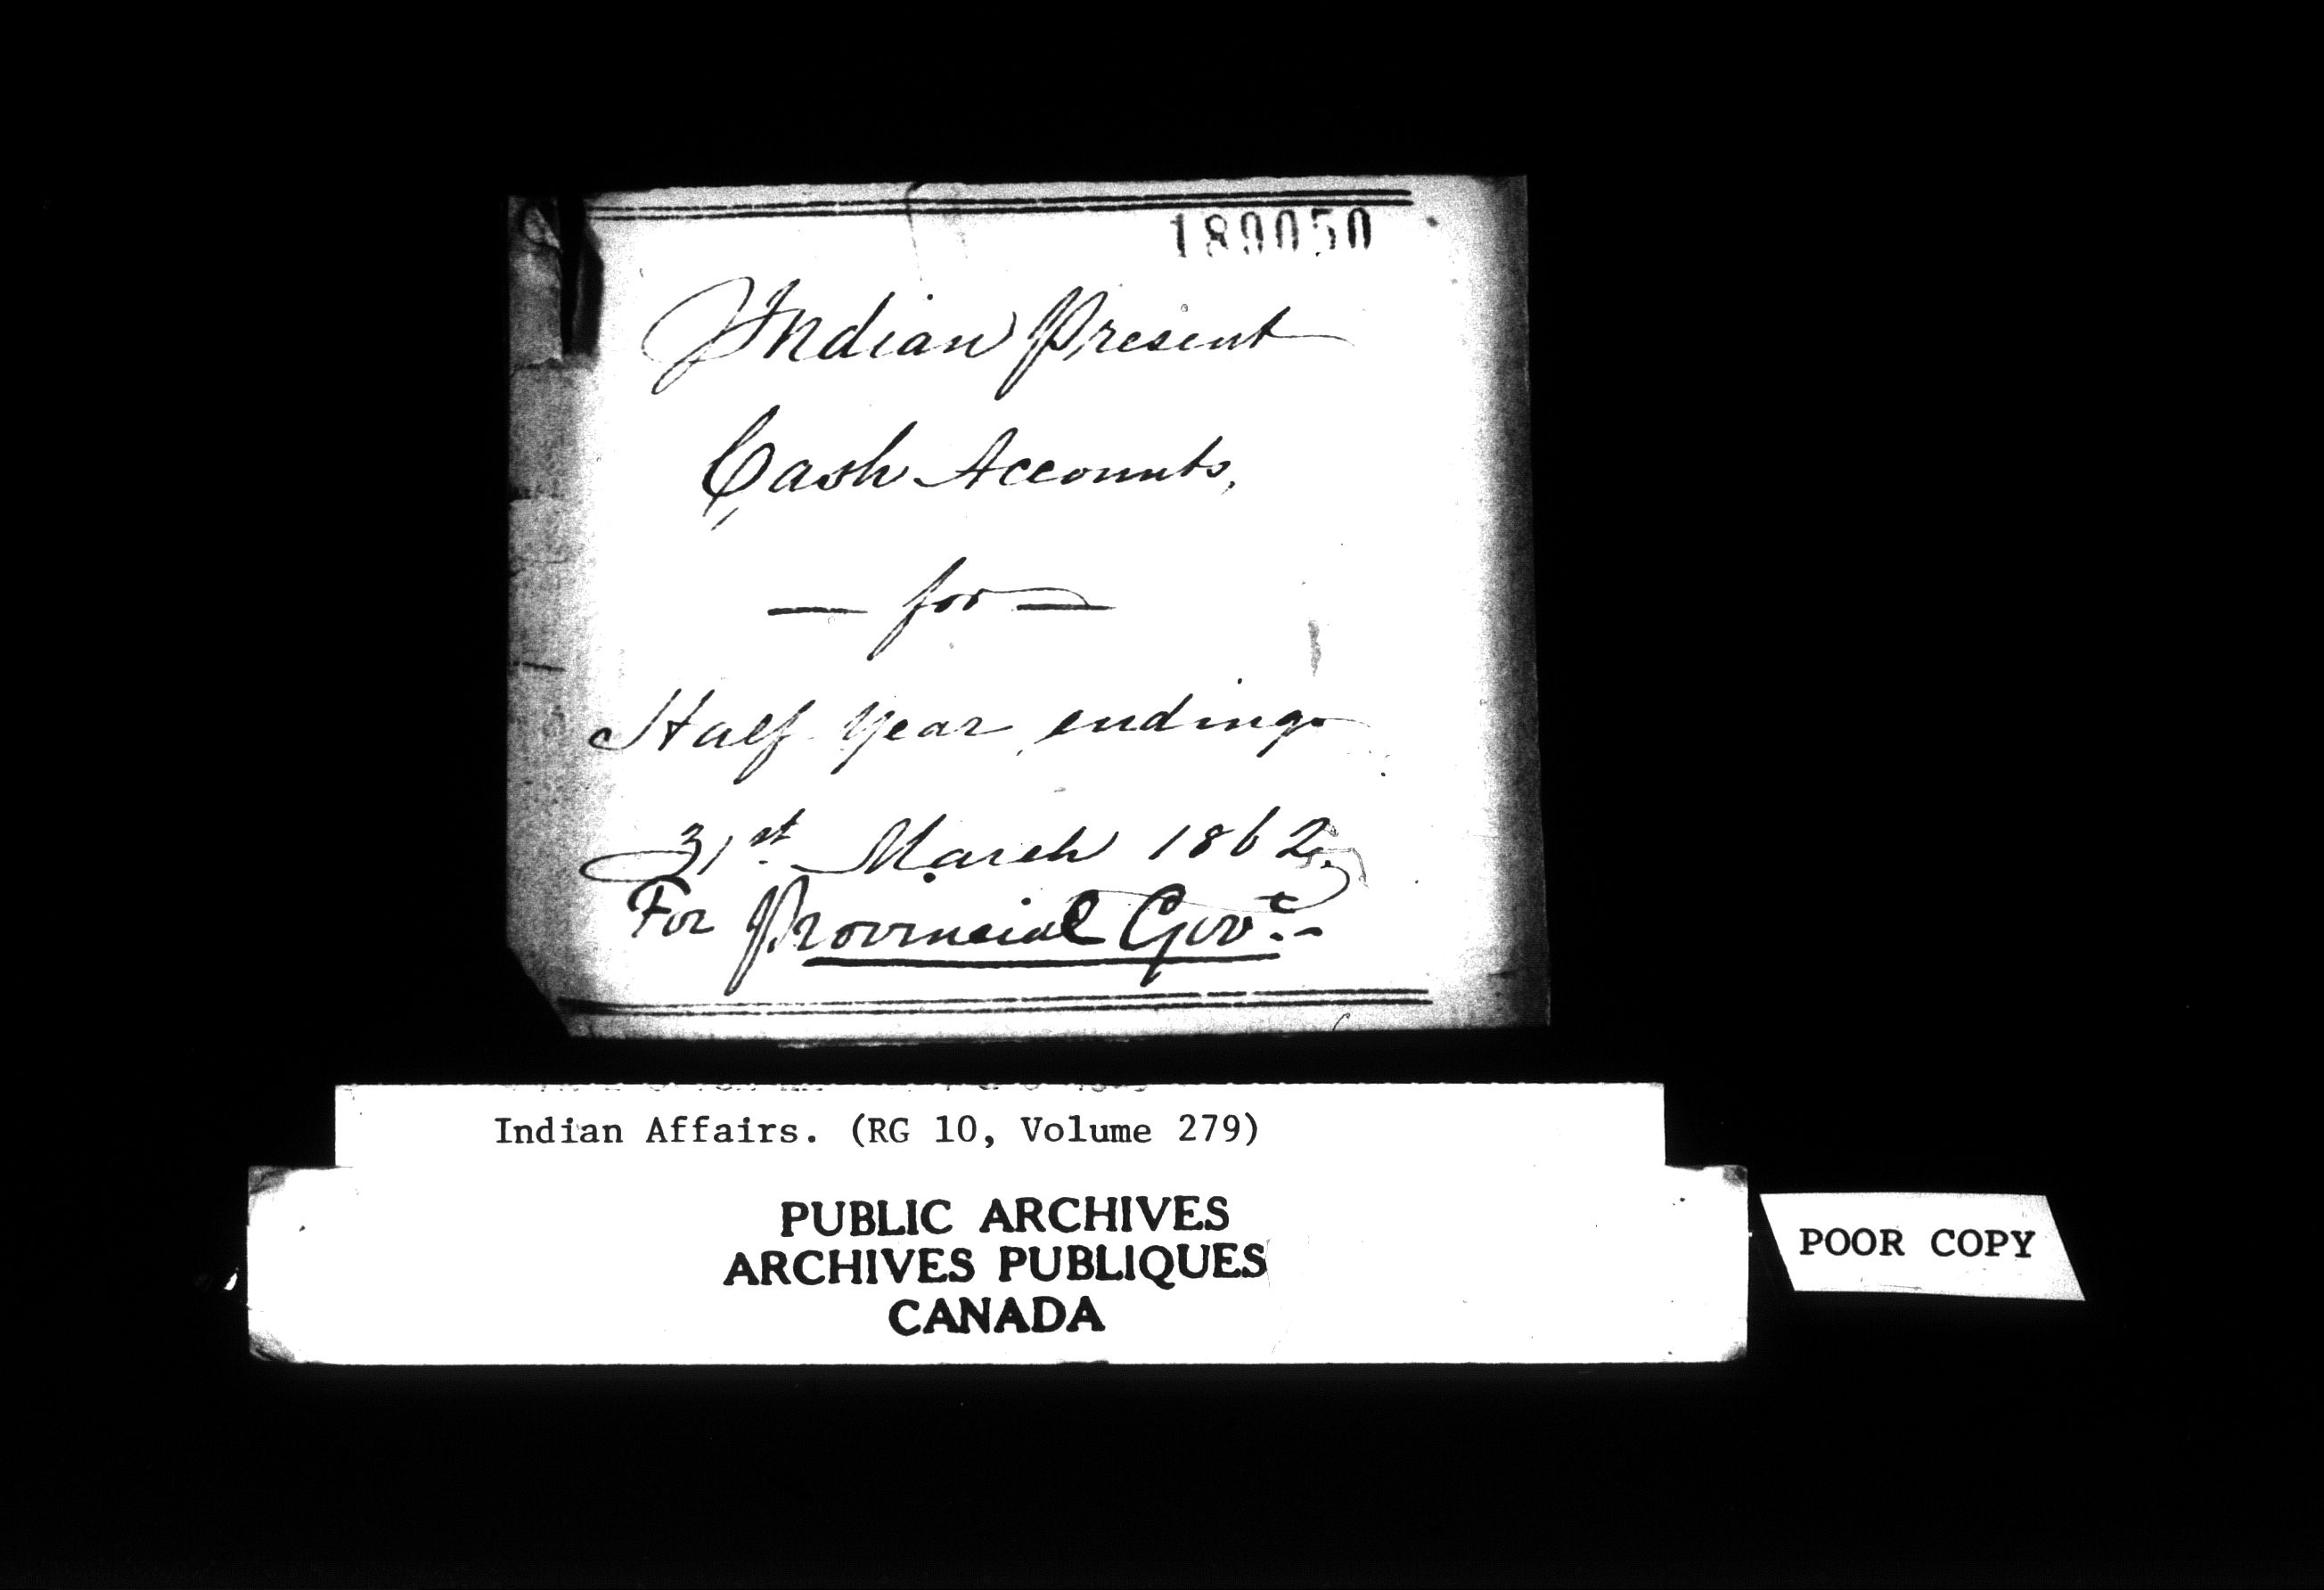 189050
Indian Present
Cash Accounts,
— for —
Half Year ending
31st March 1862,
For Provincial Govt. -
Indian Affairs. (RG 10, Volume 279)
PUBLIC ARCHIVES
ARCHIVES PUBLIQUES
CANADA
POOR COPY